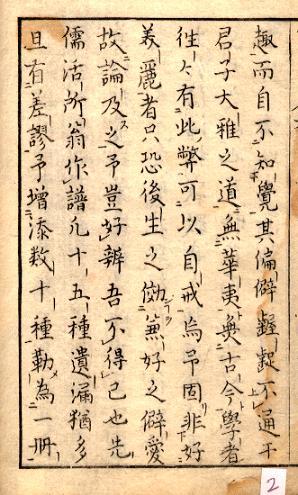 趣而自不知覺其偏僻齷齪不通于
君子大雅之道無華夷無古今學者
往々有此弊可以自戒焉予固非好
美麗者只恐後生之効兼好之僻愛
故論及之予豈好辨吾不得已也先
儒活所翁作譜凡十五種遺漏猶多
且有差謬予增添数十種勒為一冊
2